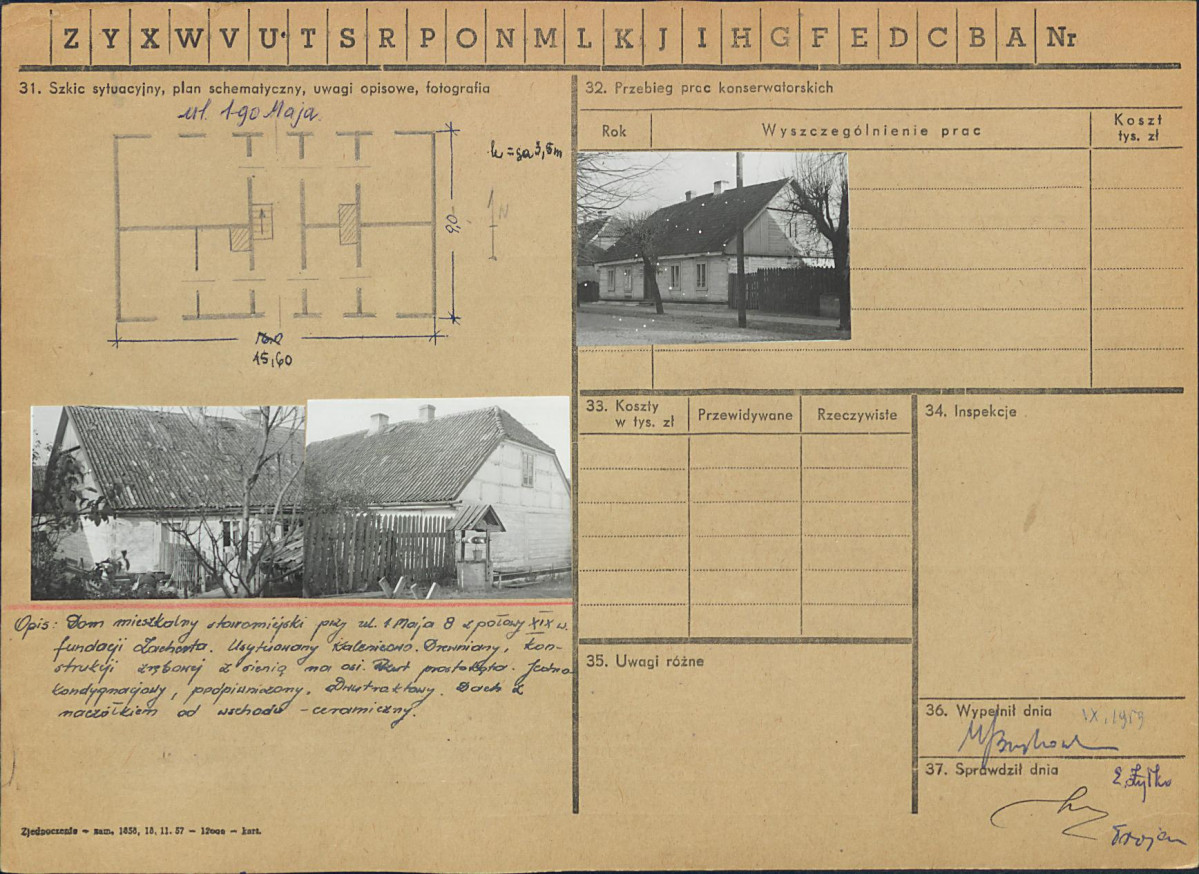 Z Y X W V U T S R P O N M L K J I H G F E D C B A Nr
31. Szkic sytuacyjny, plan schematyczny, uwagi opisowe, fotografia
ul. 1-go Maja
h = ca 3,5m
N
9,0
15,60
Opis: Dom mieszkalny staromiejski przy ul. 1 Maja 8 z połowy XIX w.
fundacji Zacherta. Usytuowany kalenicowo. Drewniany, kon-
strukcji zrębowej z sienią na osi. Rzut prostokąta. Jedno
kondygnacjowy, podpiwniczony. Dwutraktowy. Dach z
naczółkiem od wschodu - ceramiczny.
Zjednoczenie - zam. 1858, 18, 11. 57 - 12000 - kart.
32. Przebieg prac konserwatorskich
Rok
Wyszczególnienie prac
Koszt
tys. zł
33. Koszty
w tys. zł
Przewidywane
Rzeczywiste
34. Inspekcje
35. Uwagi różne
36. Wypełnił dnia IX, 1959
37. Sprawdził dnia
Trojan